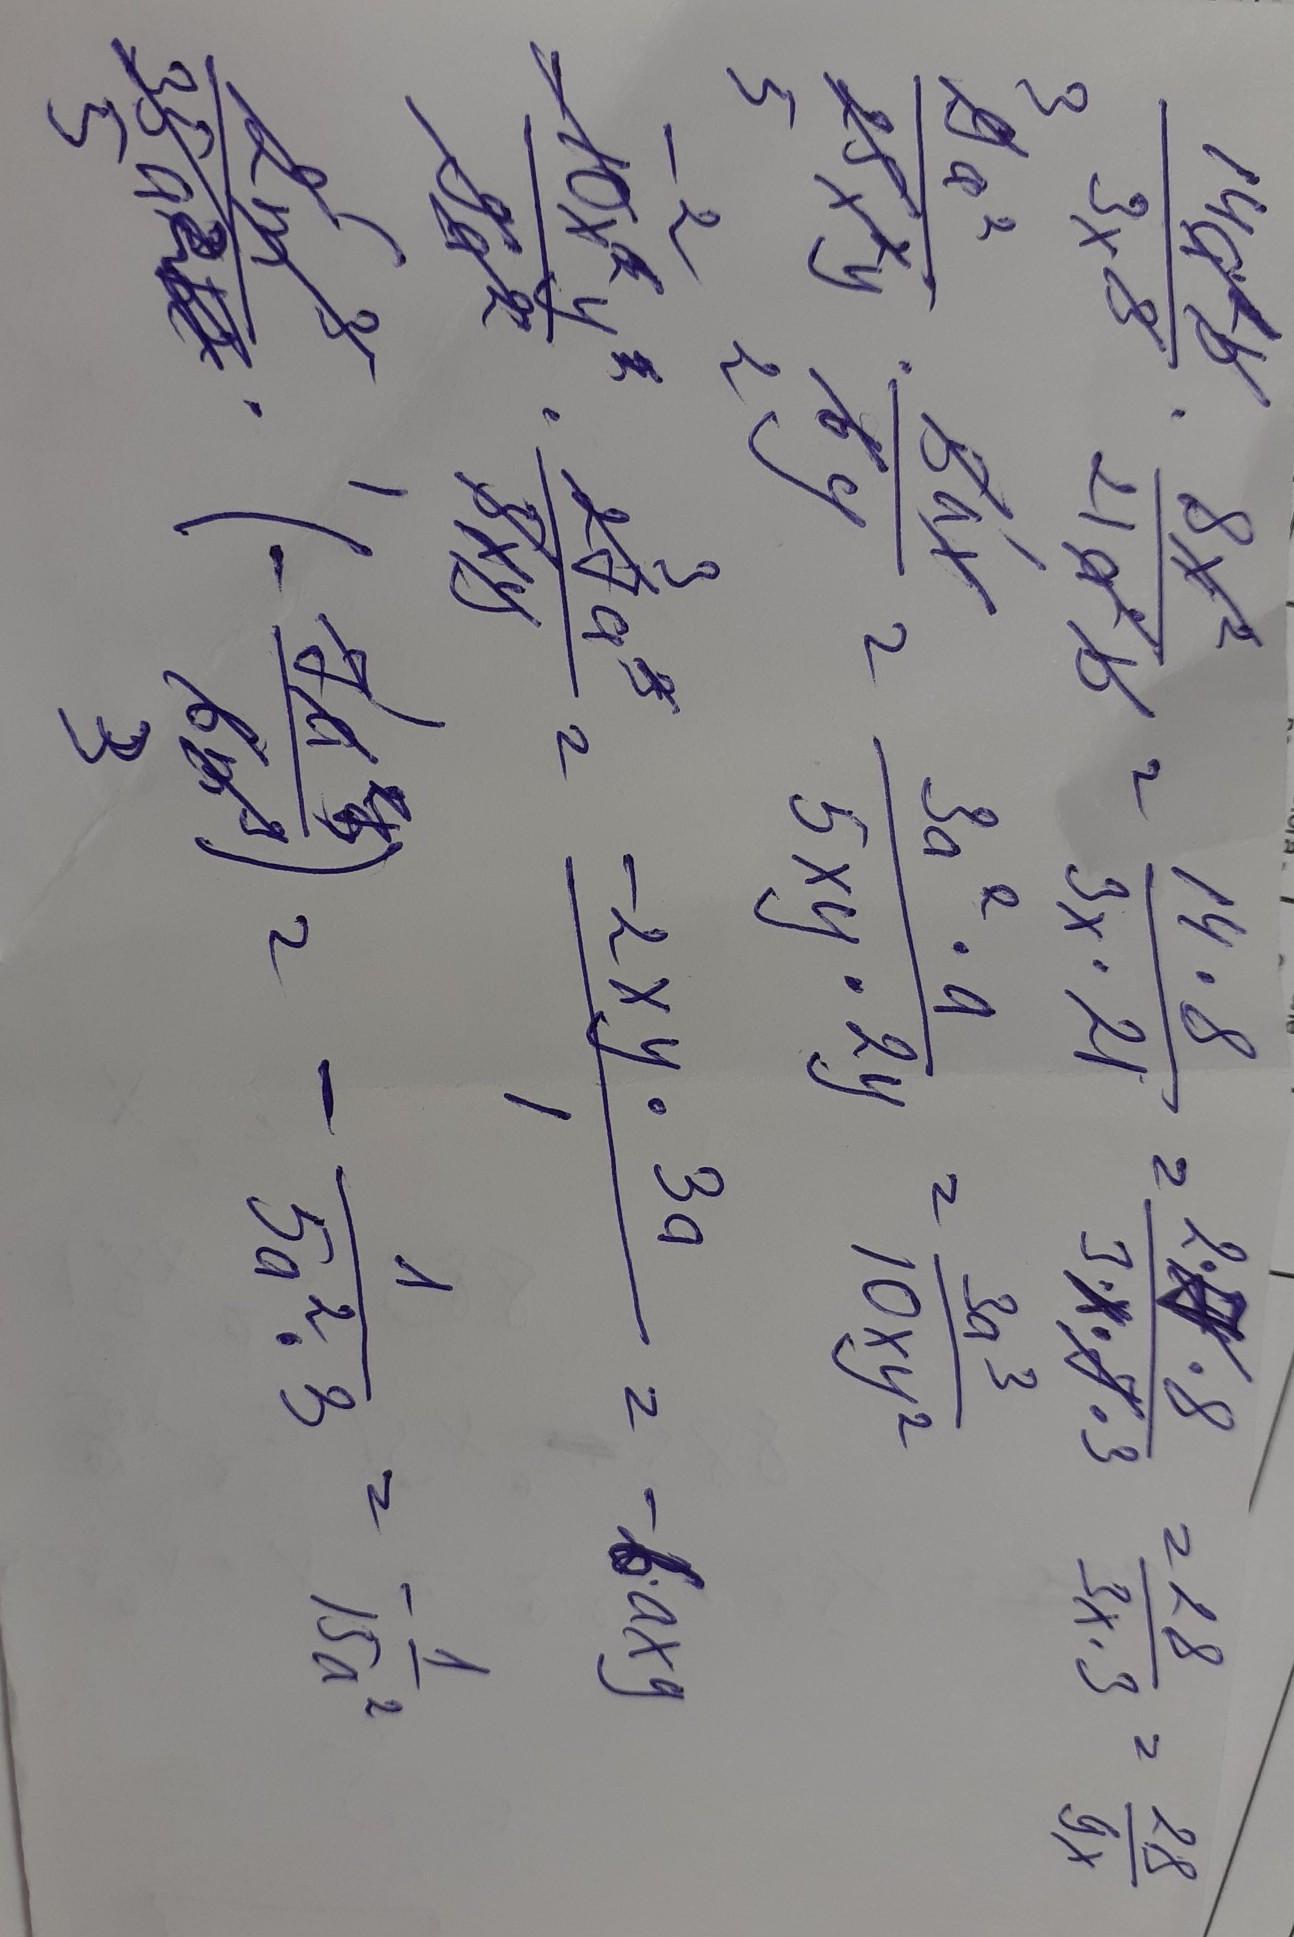 14a²b/3x³ · 8x²/21a²b = 14·8/3x·21 = 2·7·8/3·x·7·3 = 28/3x·3 = 28/9x
3 9a²/25x²y 5 · 5ax/6y 2 = 3a²·a/5xy·2y = 3a³/10xy²
-2 -10x²y²/9a² · 27a³/5xy 3 = -2xy·3a/1 = -6axy
2m³/35a 5 · (-7a/6m³) 1 3 = - 1/5a²·3 = -1/15a²